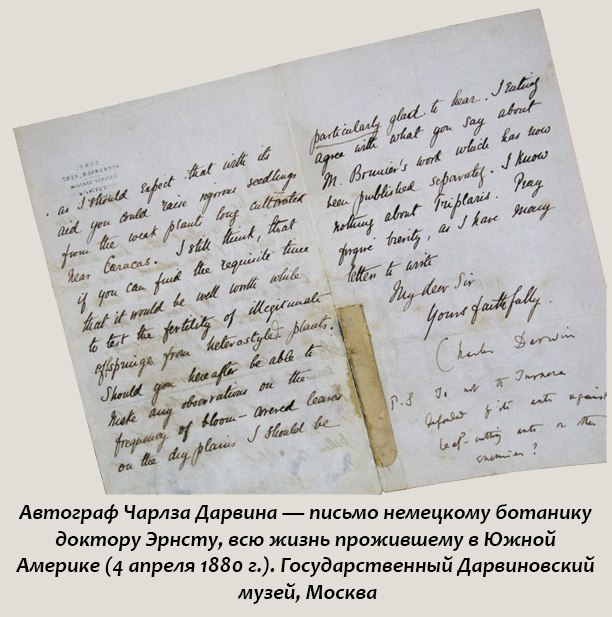 as I should expect that with its
aid you could raise vigorous seedlings
from the weak plants long cultivated
near Caracas. I still think, that
if you can find the requisite time
that it would be well worth while
to test the fertility of illegitimate
offsprings from heterostyled plants.
Should you hereafter be able to
make any observations on the
frequency of bloom-covered leaves
on the dry plains I should be
particularly glad to hear. I entirely
agree with what you say about
M. Bonnier's work which has now
been published separately. I know
nothing about Triplaris. Pray
forgive brevity, as I have many
letters to write
My dear Sir
Yours faithfully.
Charles Darwin
P.S. Is not the Turnera
defended by its ants against
leaf-cutting ants or other
enemies?
Автограф Чарлза Дарвина — письмо немецкому ботанику
доктору Эрнсту, всю жизнь прожившему в Южной
Америке (4 апреля 1880 г.). Государственный Дарвиновский
музей, Москва